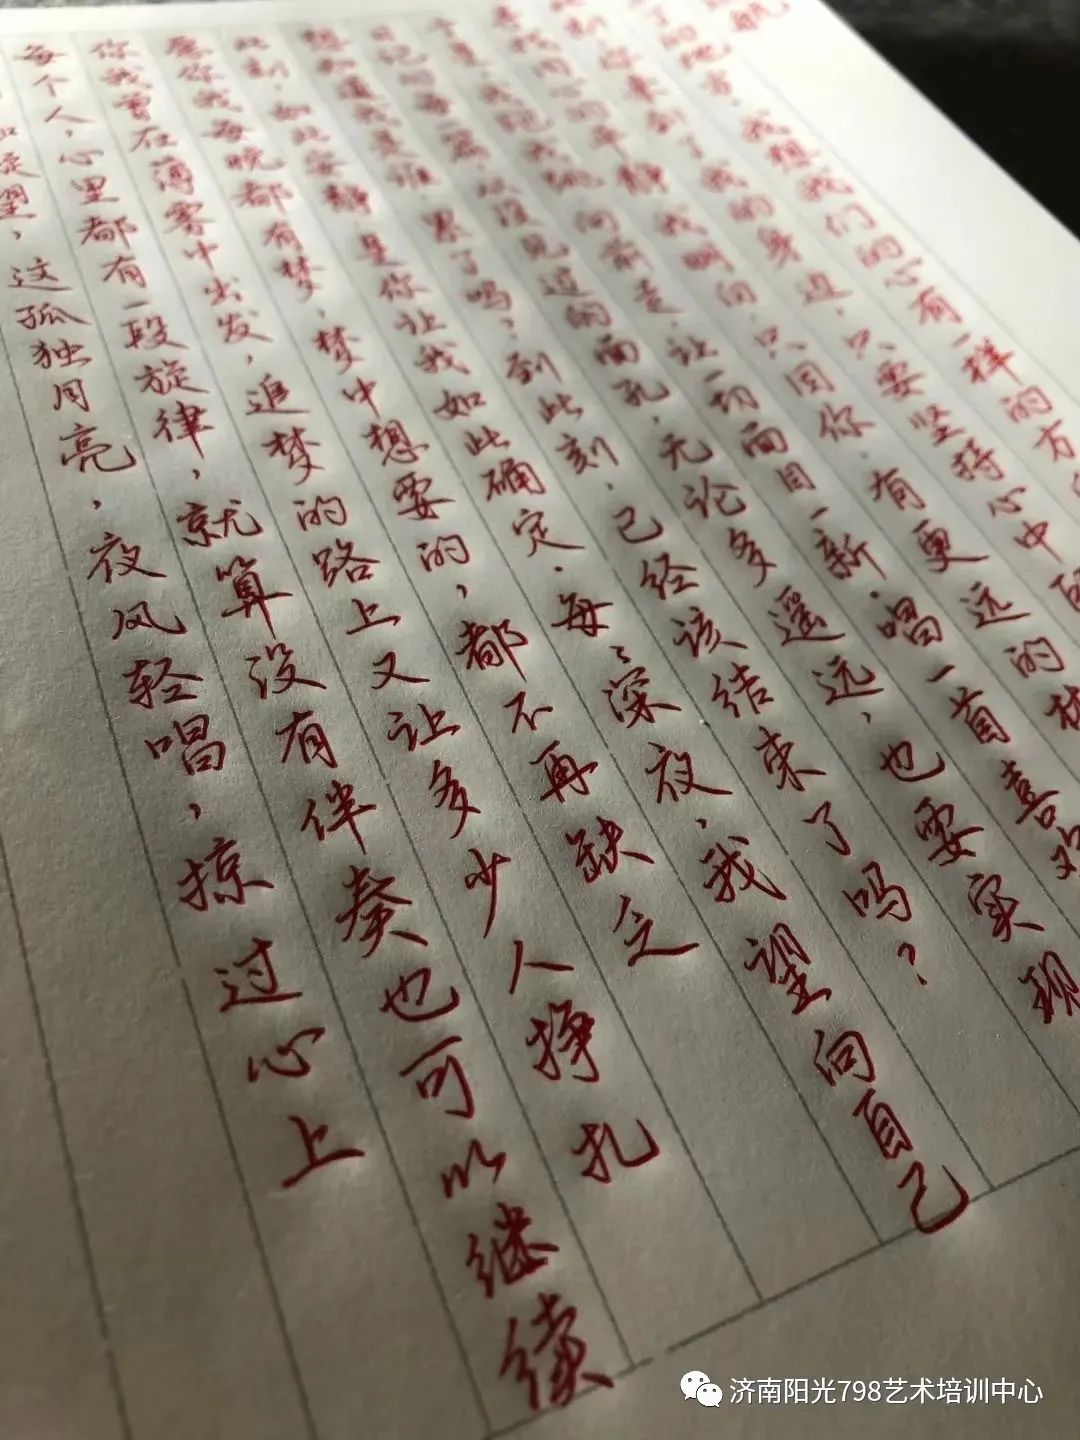 航
的地方,我想我们的心有一样的方
此刻,你来到了我的身边,只要坚持心中
内心的平静,我明白,只因你,有更远的
我把我 向前走,让一切面目一新.唱一首喜欢
日记的每一篇,从没见过的面孔,无论多遥远,也要实现
想知道我是谁.累了吗?到此刻,已经该结束了吗?
此刻,如此安静,是你让我如此确定.每,深夜,我望向自己
愿你我每晚都有梦,梦中想要的,都不再缺乏
你我曾在薄雾中出发,追梦的路上又让多少人挣扎
每个人,心里都有一段旋律,就算没有伴奏也可以继续
望,这孤独月亮,夜风轻唱,掠过心上
济南阳光798艺术培训中心